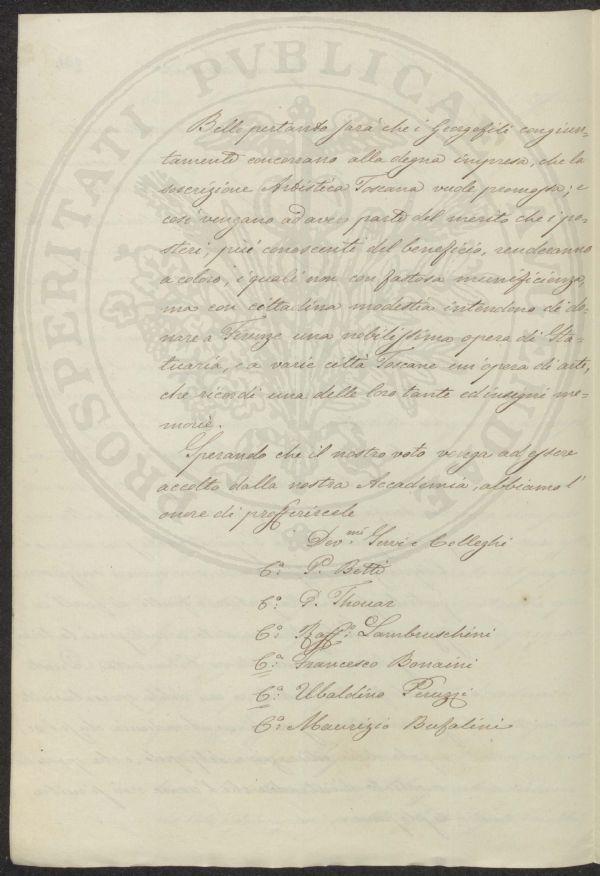 PROSPERITATI PVBLICAE
Bello pertanto sarà che i Georgofili congiun-
tamente concorrano alla degna impresa, che la
soscrizione Artistica Toscana vuole promossa; e
così vengano ad aver parte del merito che i po-
steri, più conoscenti del beneficio, renderanno
a coloro, i quali non con fastosa munificienza,
ma con cittadina modestia intendono di do-
nare a Firenze una nobilissima opera di Sta-
tuaria, e a varie città Toscane un'opera di arte,
che ricordi una delle loro tante ed insigni me-
morie.
Sperando che il nostro voto venga ad essere
accolto dalla nostra Accademia, abbiamo l'
onore di profferircele
Dev.mi Servi e Colleghi
C.o P. Betti
C.o P. Thouar
C.o Raff.o Lambruschini
C.a Francesco Bonaini
C.a Ubaldino Peruzzi
C.o Maurizio Bufalini